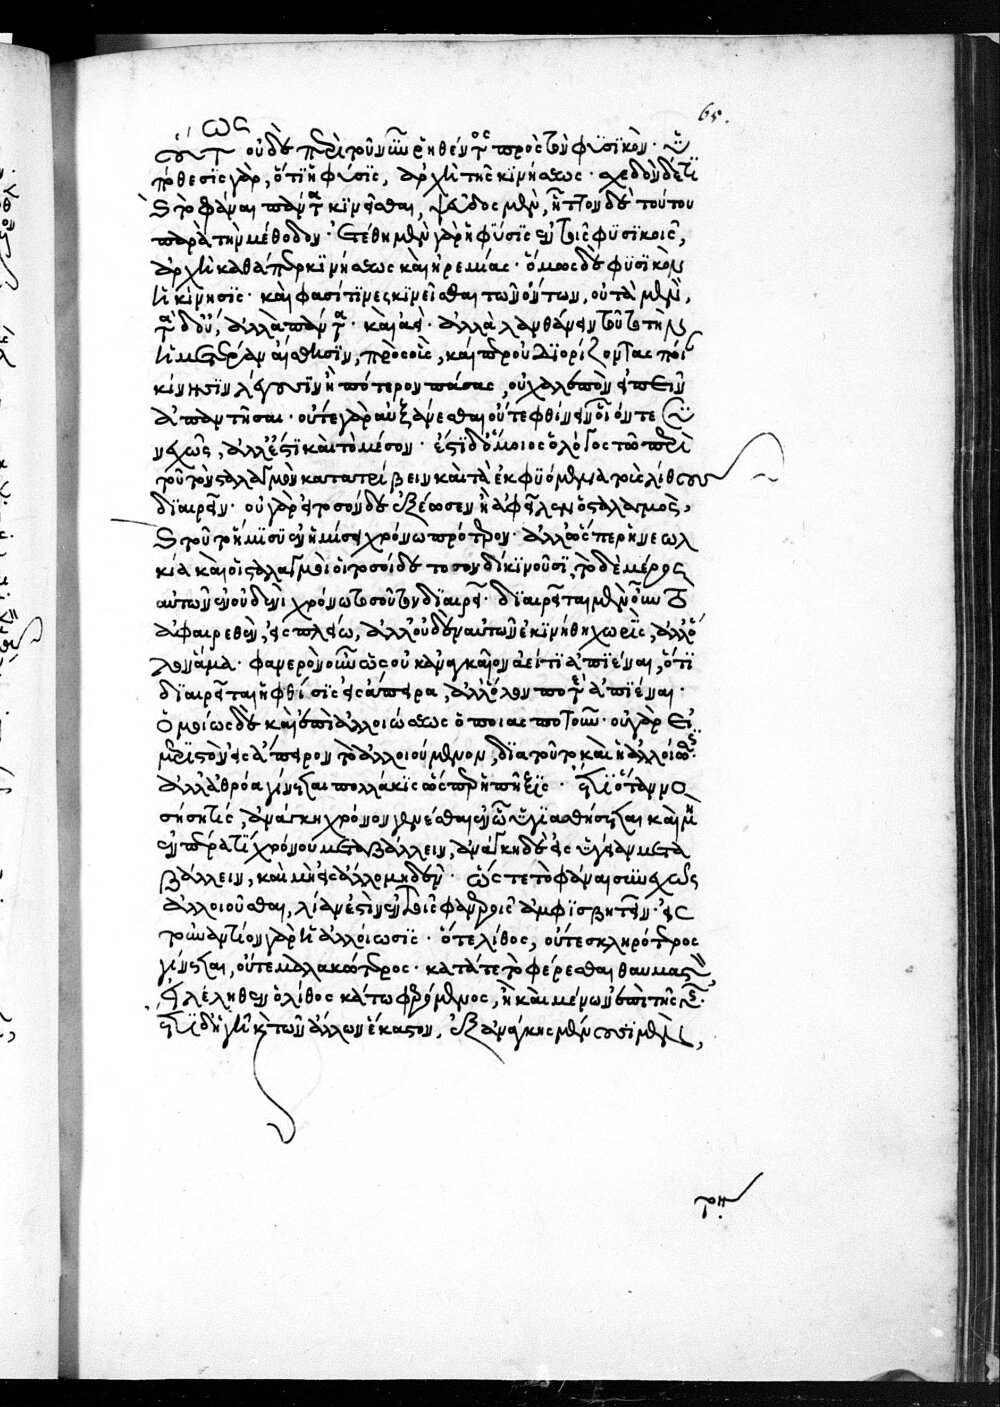 οὕτως οὐδὲ περὶ τοῦ νῦν ῥηθέντος πρὸς τὸν φυσικόν· ὑ
πόθεσις γὰρ, ὅτι ἡ φύσις, ἀρχὴ τῆς κινήσεως. σχεδὸν δέ τι
καὶ τὸ φάναι πάντα κινεῖσθαι, ψεῦδος μὲν, ἧττον δὲ τούτου
παρὰ τὴν μέθοδον· ἐτέθη μὲν γὰρ ἡ φύσις ἐν τοῖς φυσικοῖς,
ἀρχὴ καθάπερ κινήσεως καὶ ἠρεμίας· ὅμως δὲ φυσικὸν
ἡ κίνησις· καὶ φασί τινες κινεῖσθαι τῶν ὄντων, οὐ τὰ μὲν,
τὰ δ' οὔ, ἀλλὰ πάντα· καὶ ἀεὶ· ἀλλὰ λανθάνειν τοῦτο τὴν
ἡμετέραν αἴσθησιν, πρὸς οἷς, καίπερ οὐ διορίζοντας ποίαν
κίνησιν λέγουσιν ἢ πότερον πάσας, οὐ χαλεπὸν εἰπεῖν
ἀπαντῆσαι· οὔτε γὰρ αὐξάνεσθαι οὔτε φθίνειν οἷόν τε συ
νεχῶς, ἀλλ' ἔστι καὶ τὸ μέσον· ἔστι δ' ὅμοιος ὁ λόγος τῶ περὶ
τοῦ τὸν σταλαγμὸν κατατρίβειν καὶ τὰ ἐκφυόμενα τοὺς λίθους
διαιρεῖν· οὐ γὰρ εἰ τοσόνδε ἐξέωσεν ἢ ἀφεῖλεν ὁ σταλαγμὸς,
καὶ τοῦτο ἥμισυ ἐν ἡμίσει χρόνω πρότερον· ἀλλ' ὥσπερ ἡ νεωλ
κία καὶ οἱ σταλαγμοὶ οἱ τοσοίδε τοσονδὶ κινοῦσι, τὸ δὲ μέρος
αὐτῶν ἐν οὐδενὶ χρόνω τοσοῦτον διαιρεῖ· διαιρεῖται μὲν οὖν τὸ
ἀφαιρεθὲν, εἰς πλείω, ἀλλ' οὐδὲν αὐτῶν ἐκινήθη χωρὶς, ἀλλ' ὅ
λον ἅμα· φανερὸν οὖν ὡς οὐκ ἀναγκαῖον ἀεί τι ἀπιέναι, ὅτι
διαιρεῖται ἡ φθίσις εἰς ἄπειρα, ἀλλ' ὅλον ποτὲ ἀπιέναι·
ὁμοίως δὲ καὶ ἐπὶ ἀλλοιώσεως ὁποιασποτοῦν· οὐ γὰρ εἰ
μεριστὸν εἰς ἄπειρον τὸ ἀλλοιούμενον, διὰ τοῦτο καὶ ἡ ἀλλοίωσις·
ἀλλ' ἀθρόα γίνεται πολλάκις ὥσπερ ἡ πῆξις· ἔτι ὅταν νο
σήση τὶς, ἀνάγκη χρόνον γενέσθαι ἐν ᾧ ὑγιασθήσεται καὶ μὴ
ἐν πέρατι χρόνου μεταβάλλειν, ἀνάγκη δὲ εἰς ὑγείαν μετα
βάλλειν, καὶ μὴ εἰς ἄλλο μηδέν· ὥστε τὸ φάναι συνεχῶς
ἀλλοιοῦσθαι, λίαν ἐστὶν ἐν τοῖς φανεροῖς ἀμφισβητεῖν· εἰς
τοὐναντίον γὰρ ἡ ἀλλοίωσις· ὅ τε λίθος, οὔτε σκληρότερος
γίνεται, οὔτε μαλακώτερος· κατά τε τὸ φέρεσθαι θαυμαστὸν
εἰ λέληθεν ὁ λίθος κάτω φερόμενος, ἢ καὶ μένων ἐπὶ τῆς γῆς·
ἔτι δὴ γῆ καὶ τῶν ἄλλων ἕκαστον, ἐξ ἀνάγκης μένουσι μὲν,